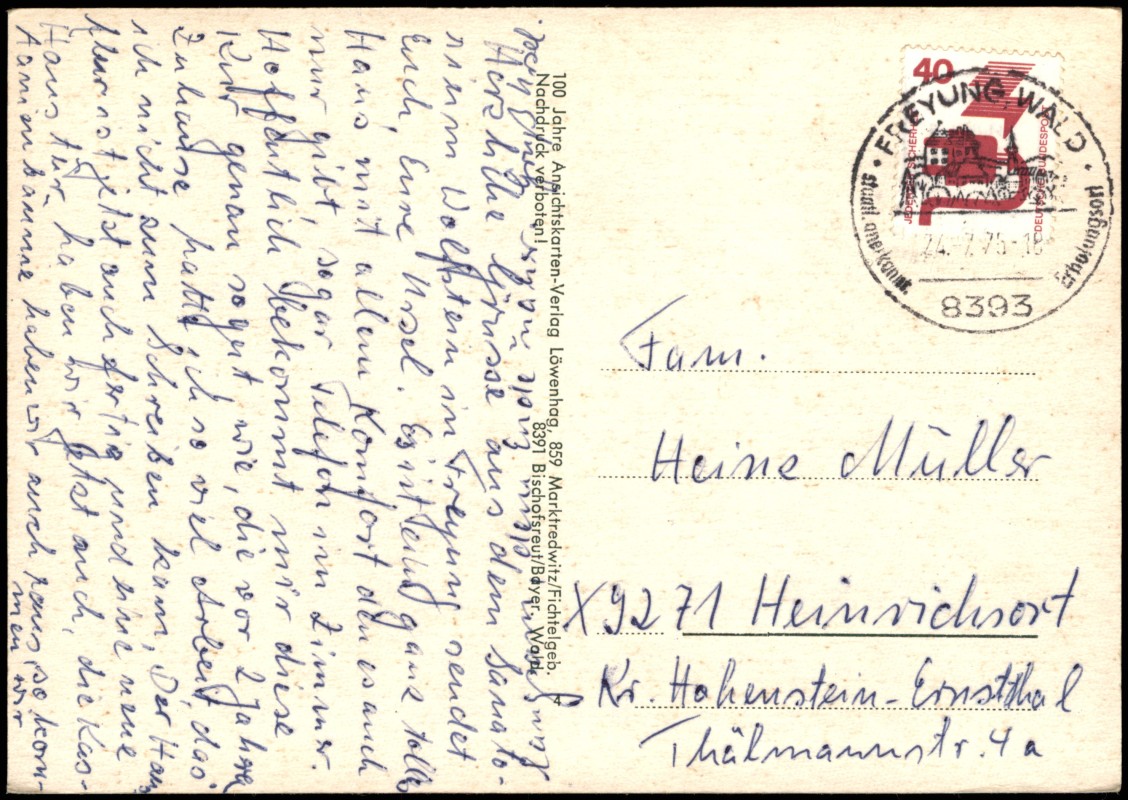 Herzliche Grüsse aus dem Sanato-
rium Wolfstein in Freyung sendet
Euch, Eure Ursel. Es ist ein ganz tolles
Haus mit allem Komfort den es auch
nur gibt sogar Telefon im Zimmer.
Hoffentlich bekommt mir diese
Kur genau so gut wie, die vor 2 Jahren
Zuhause hatte ich so viel Arbeit, das
ich nicht zum Schreiben kam, Der Haus
flur ist jetzt auch fertig und eine neue
Haustür, haben wir jetzt auch, die Kas-
tanienbäume haben wir auch raus, so kom-
men wir
100 Jahre Ansichtskarten-Verlag Löwenhag, 859 Marktredwitz/Fichtelgeb.
Nachdruck verboten!
8391 Bischofsreut/Bayer. Wald
4
40
JEDERZEIT SICHERHEIT
DEUTSCHE BUNDESPOST
FREYUNG, WALD
staatl. anerkannt
Erholungsort
24.-7.75-18
8393
Fam.
Heinz Müller
X9271 Heinrichsort
Kr. Hohenstein-Ernstthal
Thälmannstr. 4a